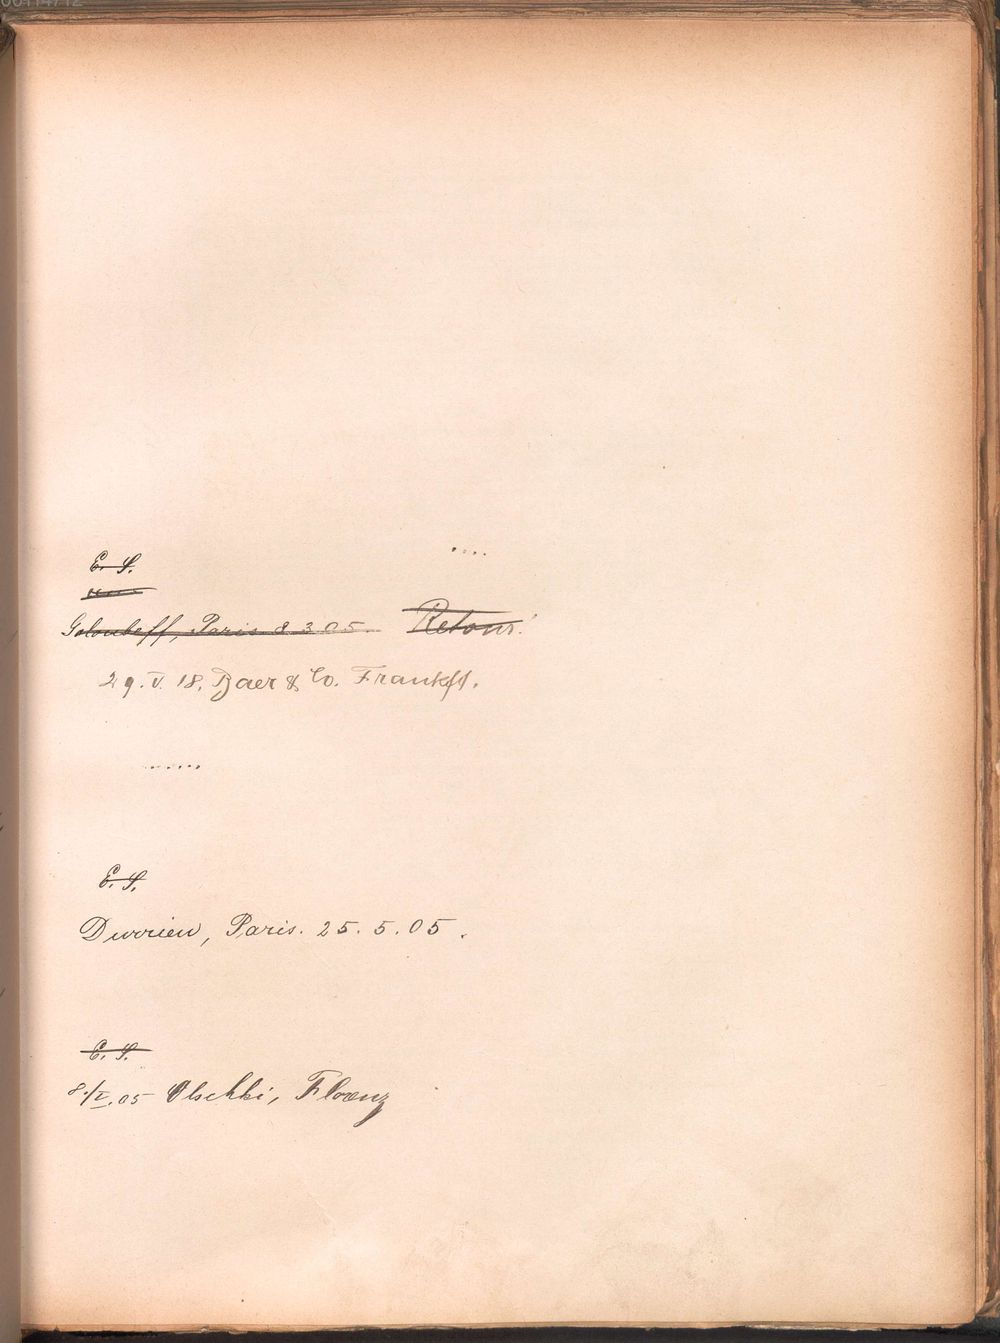 00114712
E. S.
....
Goloubeff, Paris 8 3 05 Retour!
29. V. 18. Baer & Co. Frankft.
.......
E. S.
Durrieu, Paris. 25. 5. 05.
E. S.
8./V. 05 Olschki, Florenz